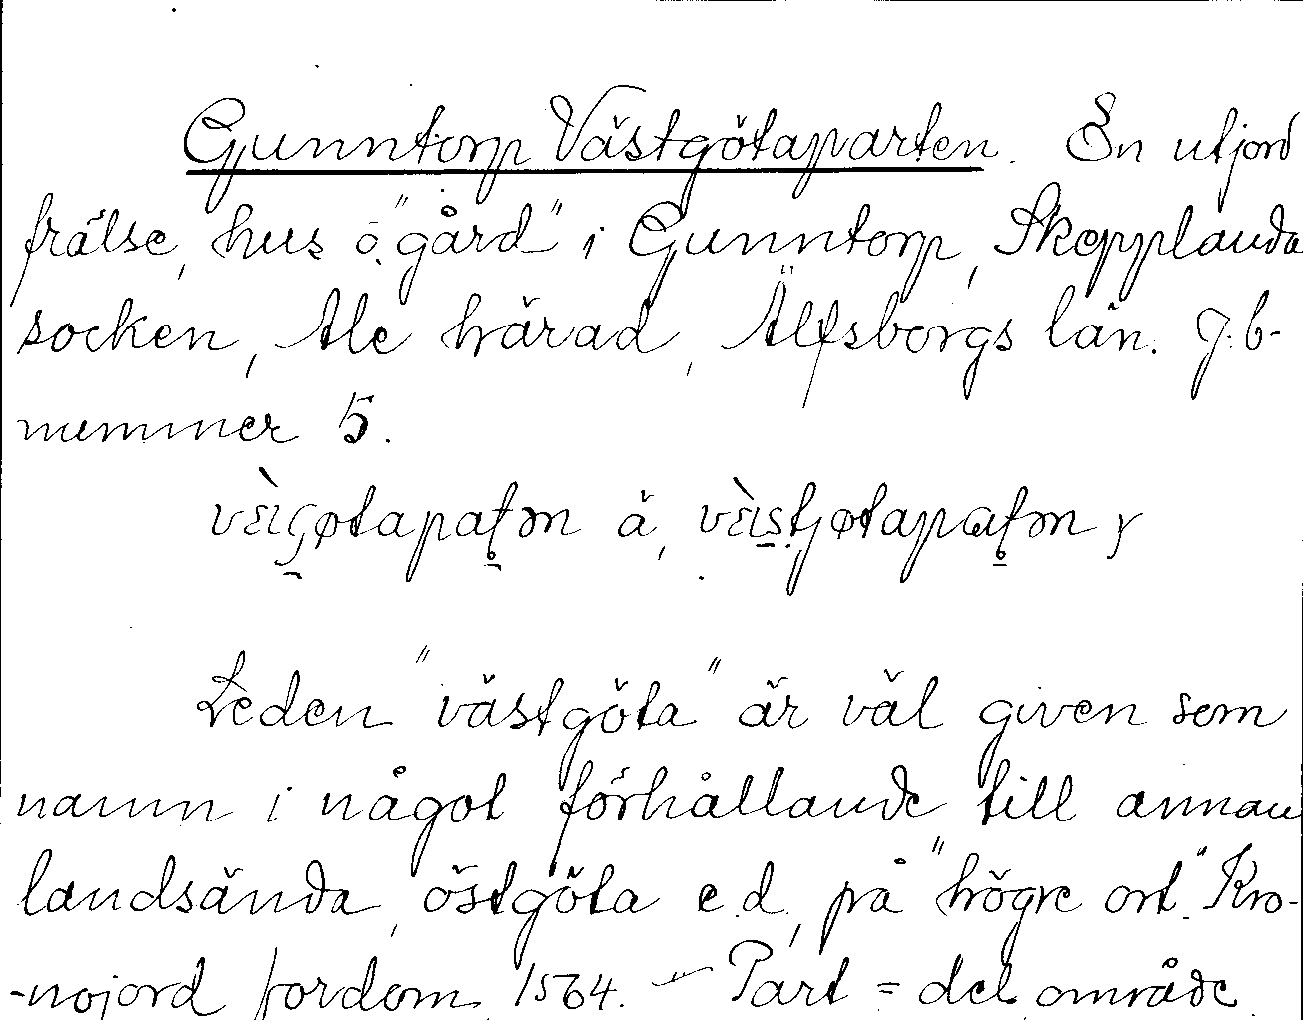 Gunntorp Västgötaparten. En utjord
frälse, hus o. "gård" i Gunntorp, Skepplanda
socken, Ale härad, Älfsborgs län. J.b-
nummer 5.
vɛ̀ıꞔøtapaʈən å, vɛ̀ıstȷøtapaʈən γ
Leden "västgöta" är väl given som
namn i något förhållande till annan
landsända, östgöta e.d., på "högre ort." Kro-
-nojord fordom 1564. – Part = del, område